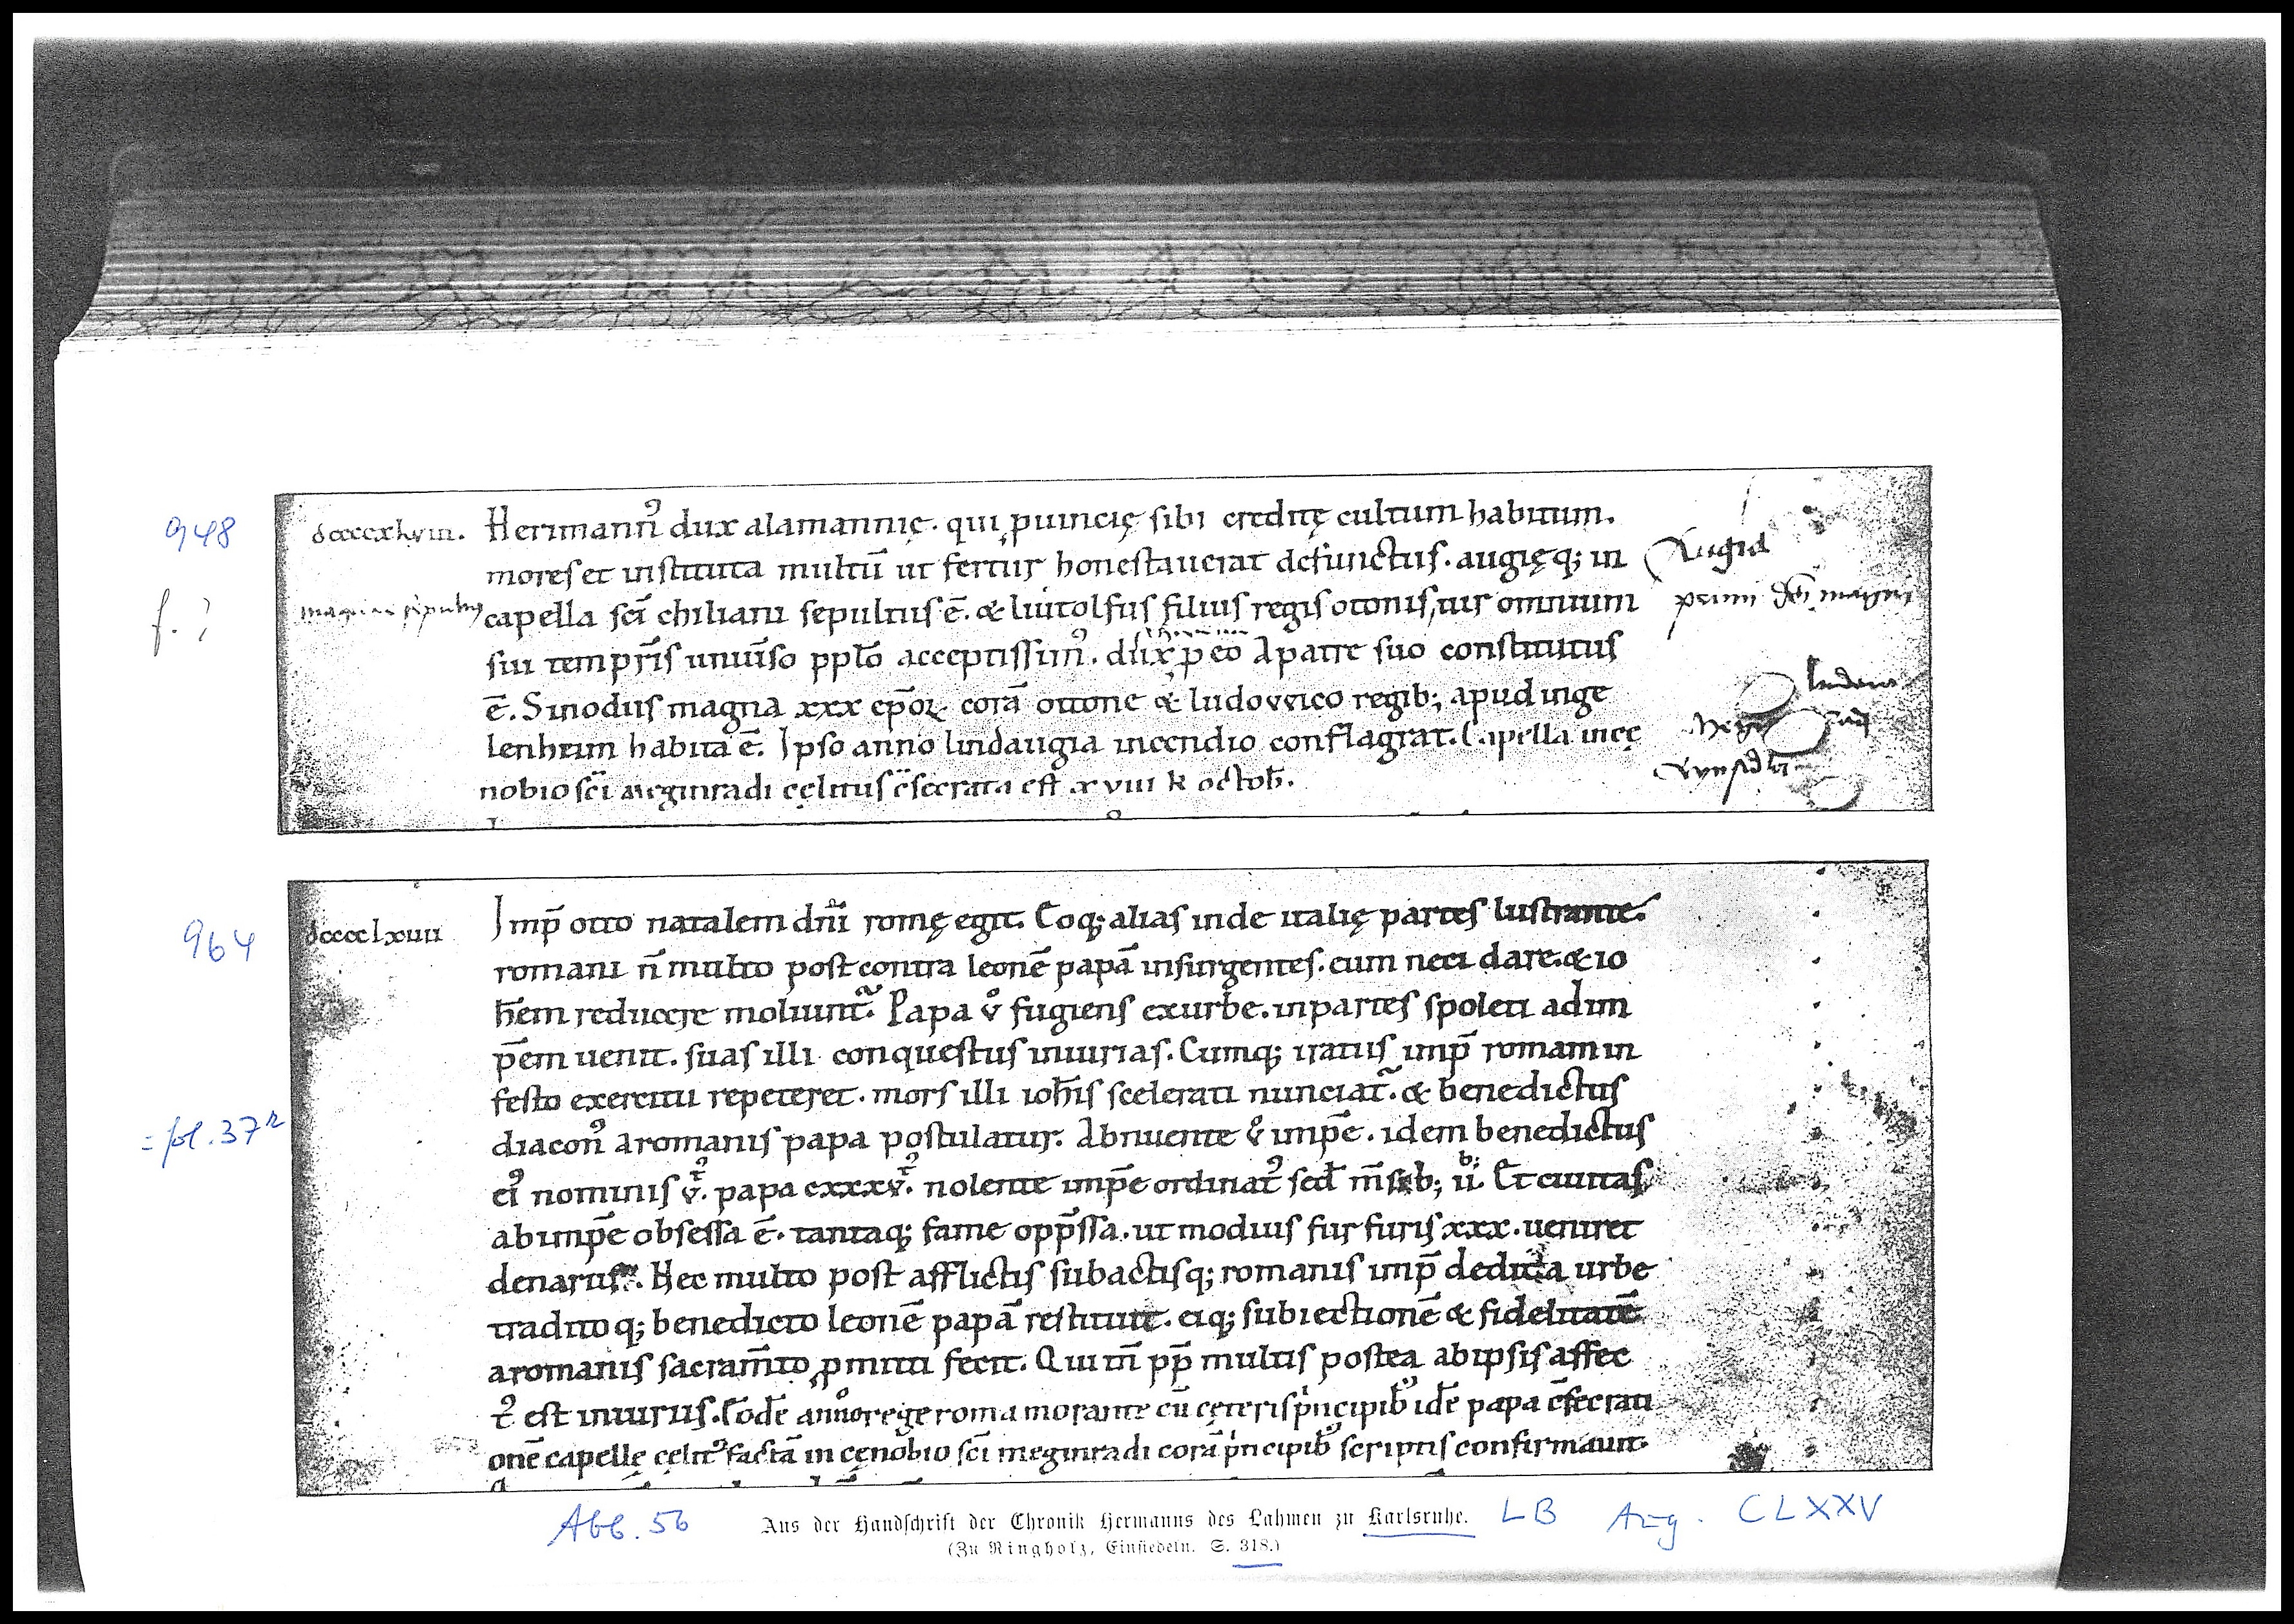 948
dccccxlviii. Herimann᾿ dux alamannię. qui ꝓuincię sibi creditę cultum habitum.
mores et instituta multū ut fertur honestauerat defunctus. augięq; in
Augia
f. ?
capella sc̄i chiliani sepultus ē. & liutolfus filius regis otonis, uir omnium
sui temp̄ris uniūso pplō acceptissim᾿. dux p eo a patre suo constitutus
ē. Sinodus magna xxx ep̄oꝝ corā ottone & ludovvico regib; apud inge
lenheim habita ē. Ipso anno lindaugia incendio conflagrat. Capella in cę
nobio sc̄i meginradi cęlitus c̄secrata est xviii k octob̄.
964
dcccclxiiii Imp̄ otto natalem dn̄i romę egit. Eoq; alias inde italię partes lustrante.
romani n̄ multo post contra leonē papā insurgentes. eum neci dare. & io
h̄em reducere moliunt᷑. Papa v̊ fugiens ex urbe. in partes spoleti ad im
p̄em uenit. suas illi conquestus iniurias. Cumq; iratus imp̄ romam in
festo exercitu repeteret. mors illi ioh̄is scelerati nunciat᷑. & benedictus
= fol. 37r
diacon᾿ a romanis papa postulatur. Abnuente v̊ imp̄e. idem benedictus
ei᾿ nominis v. papa cxxxv. nolente imp̄e ordinat᾿ sed m̄sib; ii. Et ciuitas
ab imp̄e obsessa ē. tantaq; fame opp̄ssa. ut modius furfuris xxx. ueniret
denariis. Nec multo post afflictis subactisq; romanis imp̄ dedita urbe
traditoq; benedicto leonē papā restituit. eiq; subiectionē & fidelitatē
a romanis sacram̄to ꝓmitti fecit. Qui m̄ pp̄ multis postea ab ipsis affec
t᾿ est iniuriis. Eodē anno rege roma morante cū cęteris pincipib᾿ idē papa c̄secrati
onē capellę cęlit᾿ factā in cęnobio sc̄i meginradi corā pincipib᾿ scriptis confirmauit.
Abb. 56
Aus der Handschrift der Chronik Hermanns des Lahmen zu Karlsruhe.
LB Aug. CLXXV
(Zu Ringholz, Einsiedeln. S. 318.)